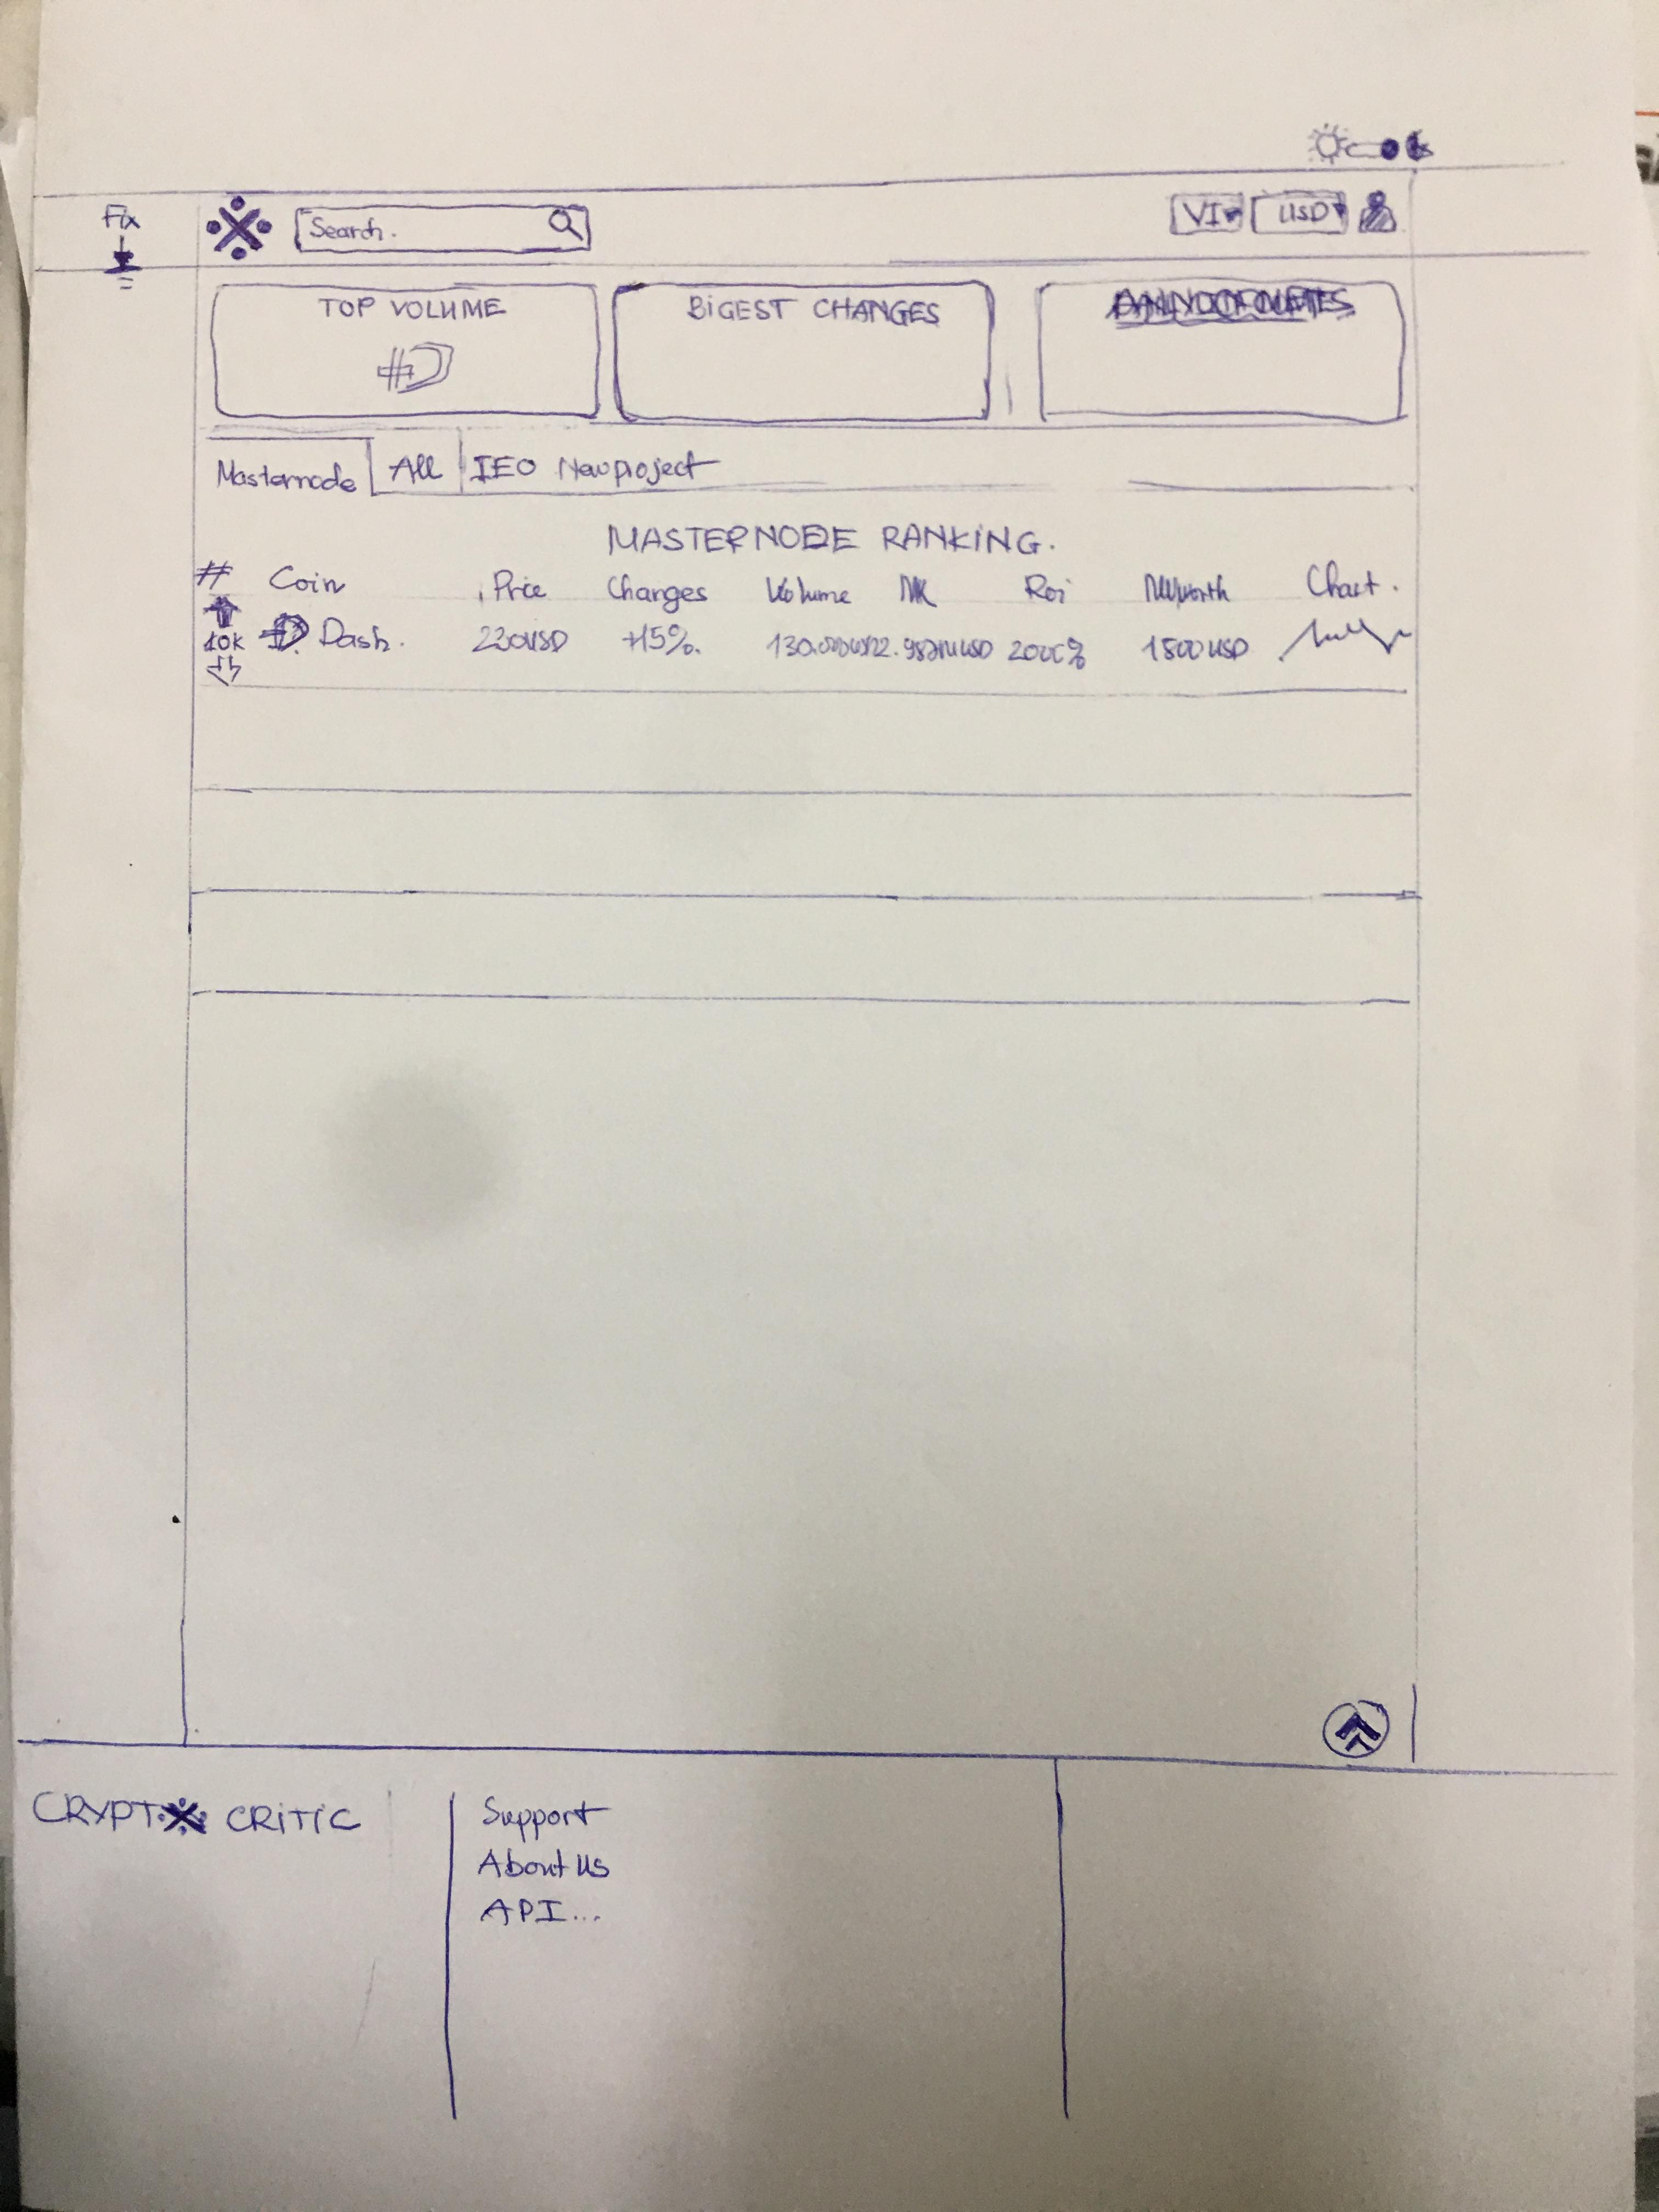 Fix
Search.
VI USD
TOP VOLUME
BiGEST CHANGES
Masternode All IEO New project
MASTERNODE RANKiNG.
# Coin Price Changes Volume MK Roi MNworth Chart.
10K Dash. 230USD +15%. 2000% 1500USD
CRYPT CRiTiC
Support
About us
API...